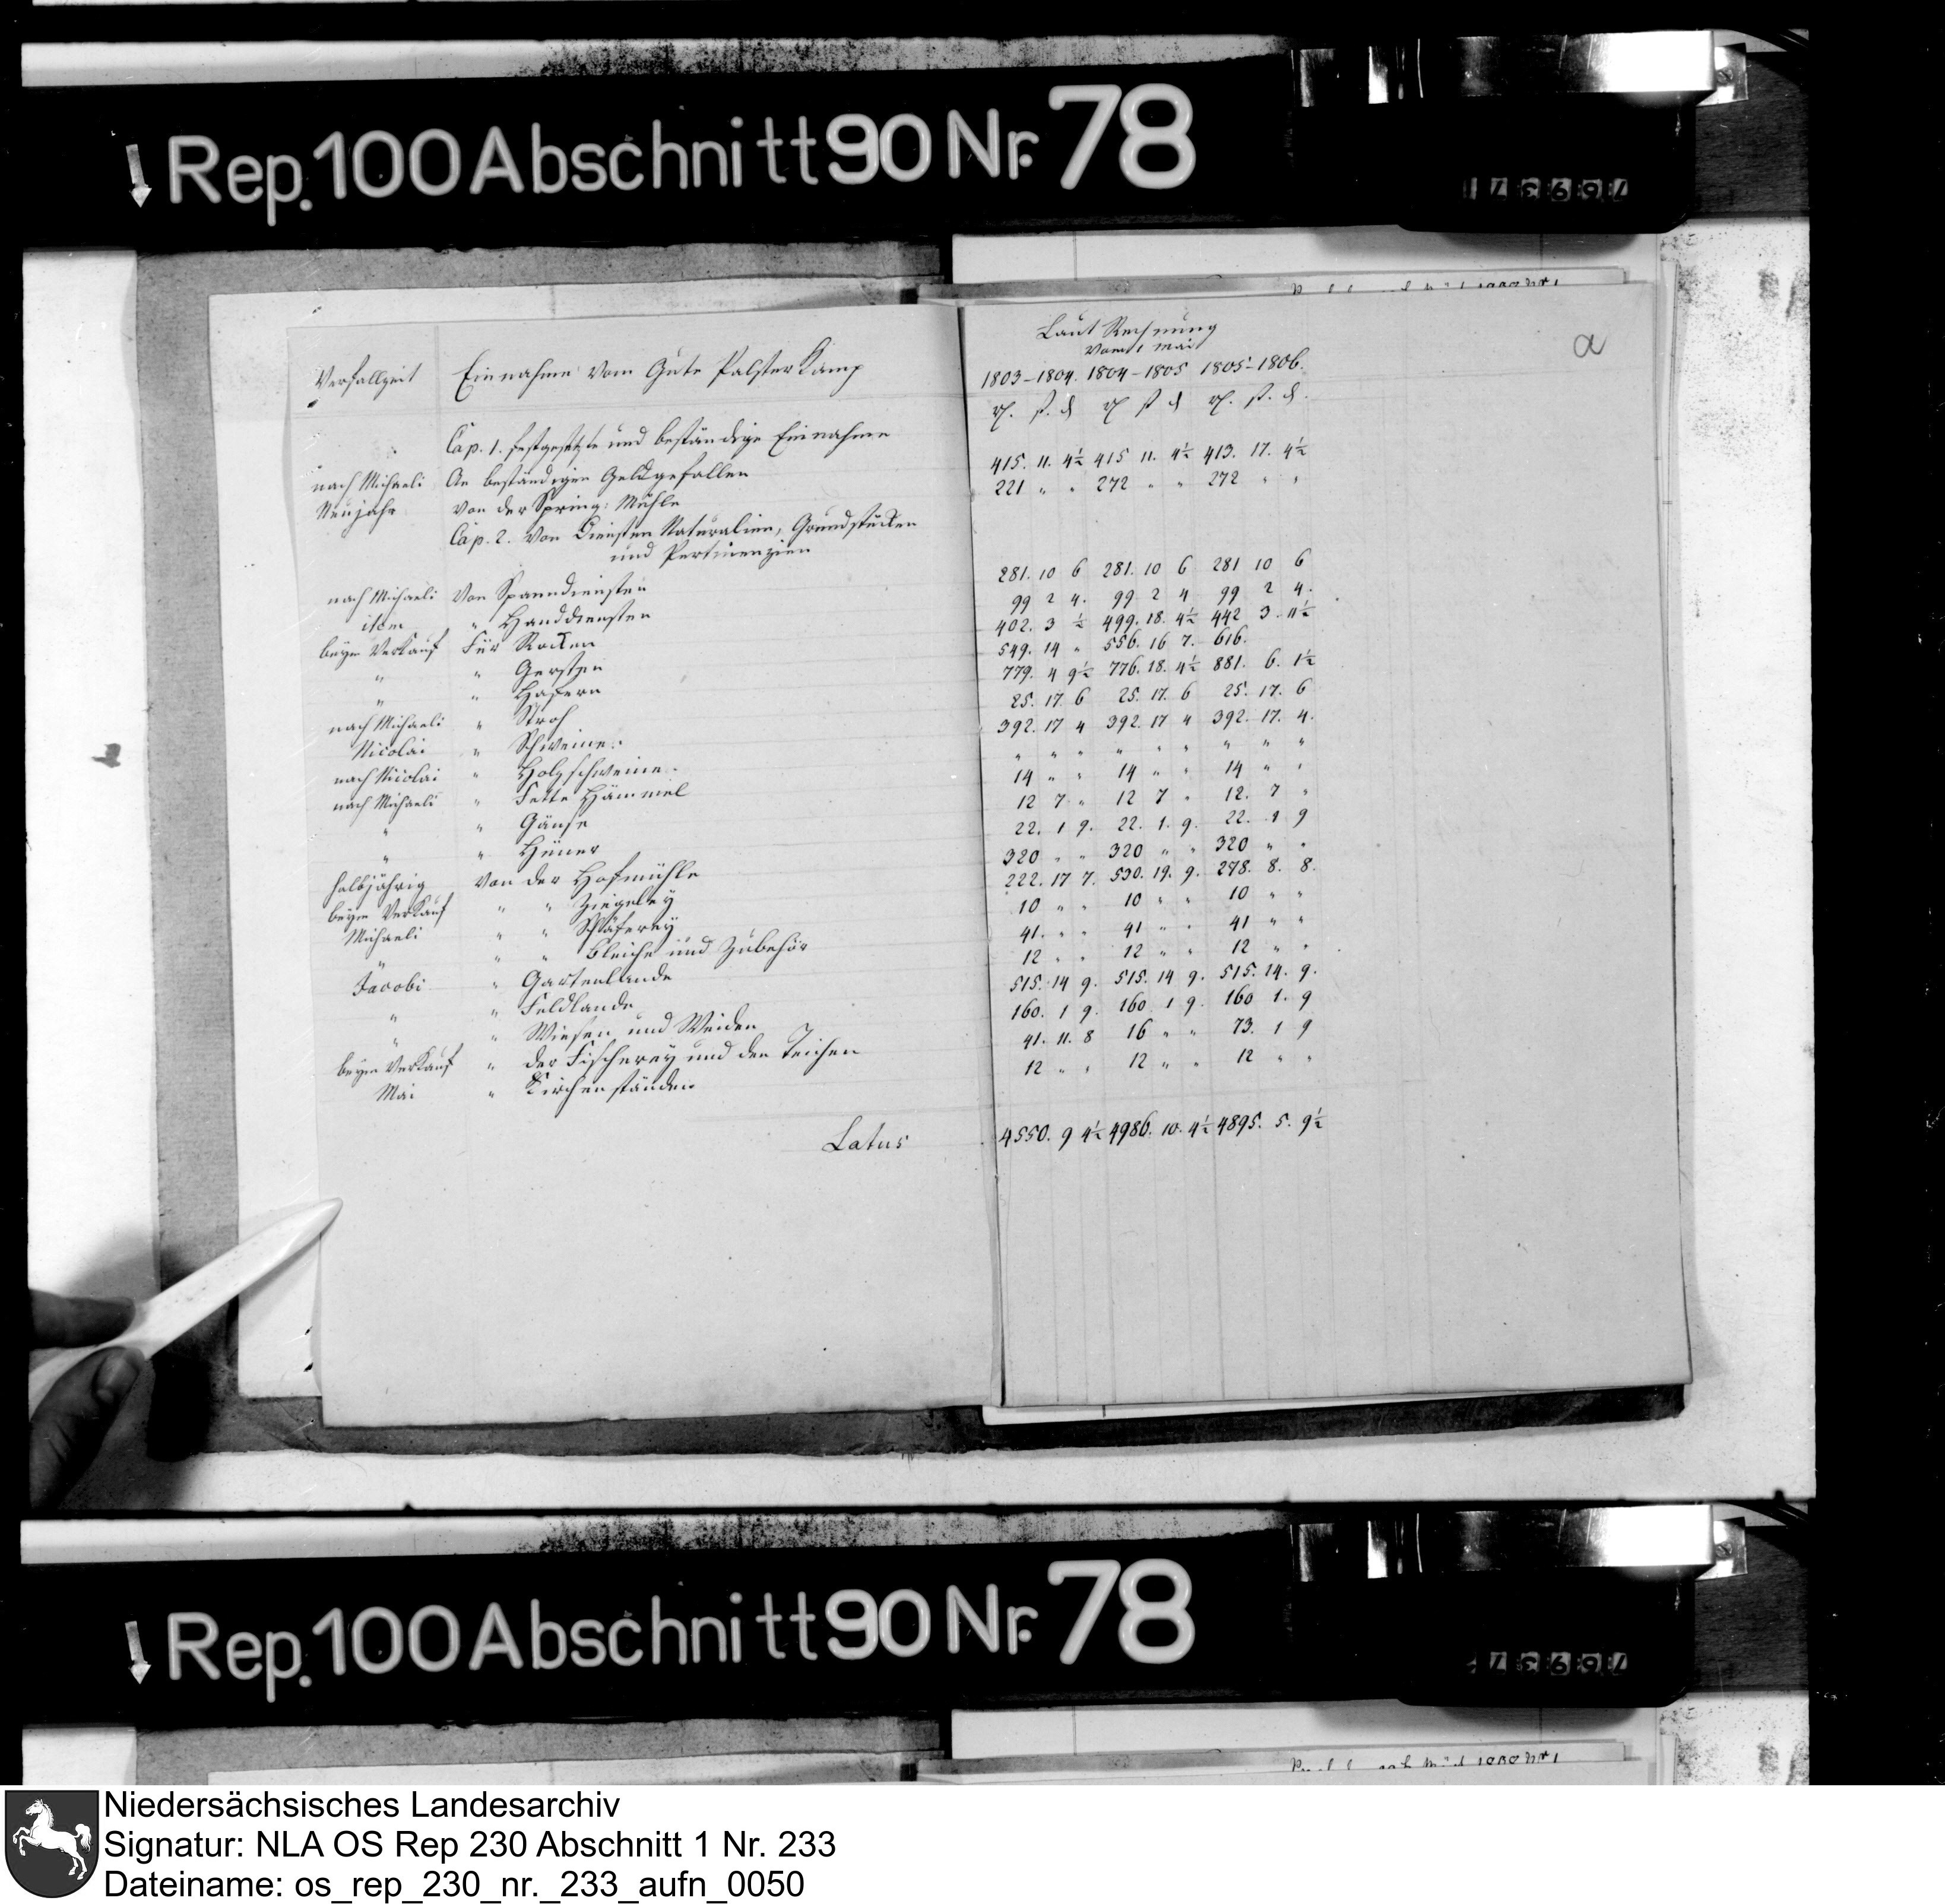 Rep. 100 Abschnitt 90 Nr. 78
76937
Laut Rechnung
vom 1 Mai
a
Verfallzeit Einnahme vom Gute Palsterkamp 1803-1804. 1804-1805 1805-1806.
rl. ß. d rl ß d rl. ß. d.
Cap. 1. festgesetzte und beständige Einnahme
nach Michaeli An beständigen Geldgefällen 415. 11. 4½ 415 11. 4½ 413. 17. 4½
Neujahr von der Spring: Mühle 221 " " 272 " " 272 " "
Cap. 2. Von Diensten Naturalien, Grundstücken
und Pertinenzien
nach Michaeli Von Spanndiensten 281. 10 6 281. 10 6 281 10 6
item " Handdiensten 99 2 4. 99 2 4 99 2 4.
beym Verkauf Für Rocken 402. 3 ½ 499. 18. 4½ 442 3. 11½
" " Gersten 549. 14 " 556. 16 7. 616.
" " Hafern 779. 4 9½ 776. 18. 4½ 881. 6. 1½
nach Michaeli " Stroh 25. 17. 6 25. 17. 6 25. 17. 6
Nicolai " Schweine. 392. 17 4 392. 17 4 392. 17. 4.
nach Nicolai " Holzschweine. " " " " " " " " "
nach Michaeli " Fette Hämmel 14 " " 14 " " 14 " "
" " Gänse 12 7 " 12 7 " 12. 7 "
" " Hüner 22. 1 9. 22. 1. 9. 22. 1 9
halbjährig Von der Hofmühle 320 " " 320 " " 320 " "
beym Verkauf " " Ziegeley 222. 17 7. 530. 19. 9. 278. 8. 8.
Michaeli " " Schäferey 10 " " 10 " " 10 " "
" " " Bleiche und Zubehör 41. " " 41 " " 41 " "
Jacobi " Gartenlande 12 " " 12 " " 12 " "
" " Feldlande 515. 14 9. 515. 14 9. 515. 14. 9.
" " Wiesen und Weiden 160. 1 9. 160. 1 9. 160 1. 9
beym Verkauf " der Fischerey und den Teichen 41. 11. 8 16 " " 73. 1 9
Mai " Kirchenständen 12 " " 12 " " 12 " "
Latus 4550. 9 4½ 4986. 10. 4½ 4895. 5. 9½
Rep. 100 Abschnitt 90 Nr. 78
76937
Niedersächsisches Landesarchiv
Signatur: NLA OS Rep 230 Abschnitt 1 Nr. 233
Dateiname: os_rep_230_nr._233_aufn_0050